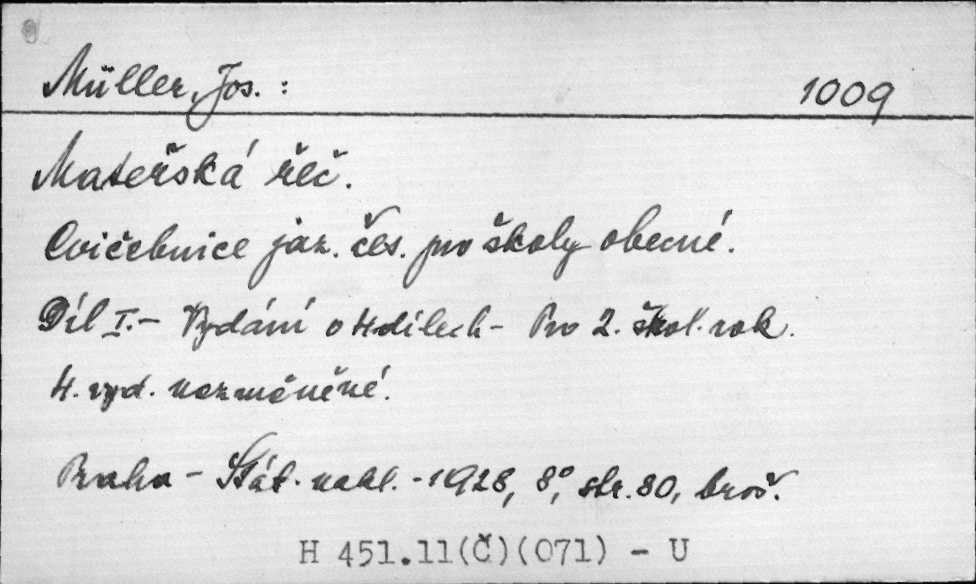 Müller, Jos. : 1009
Mateřská řeč.
Cvičebnice jaz. čes. pro školy obecné.
Díl I. - Vydání o 4 dílech - Pro 2. škol. rok.
4. vyd. nezměněné.
Praha - Stát. nakl. - 1928, 8°, str. 80, brož.
H 451.11(Č)(071) - U